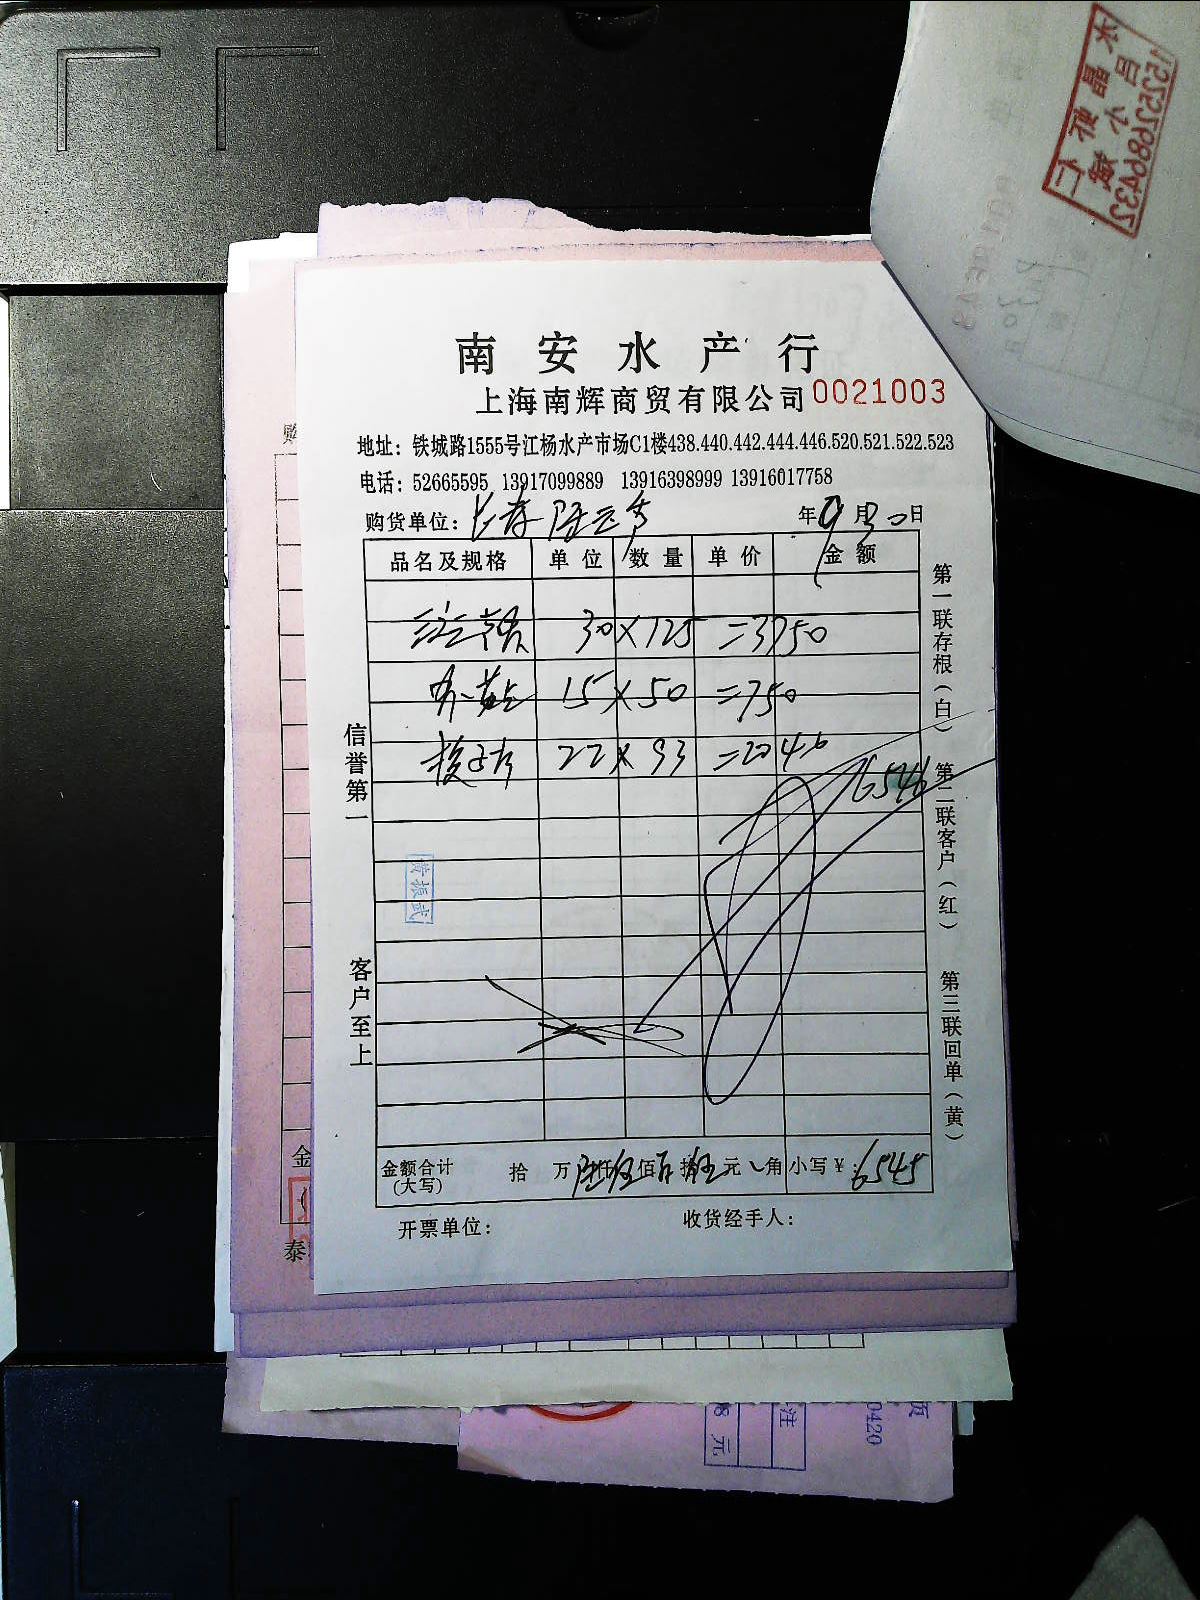 南安水产行
上海南辉商贸有限公司 0021003
地址：铁城路1555号江杨水产市场C1楼438.440.442.444.446.520.521.522.523
电话：52665595 13917099889 13916398999 13916017758
购货单位： 年9月30日
品名及规格 单位 数量 单价 金额
30×125=3750
15×50=750
22×93=2046
6546
信誉第一
客户至上
黄振武
第一联存根（白）
第二联客户（红）
第三联回单（黄）
金额合计（大写） 拾 万 仟 佰 拾 元 角 小写￥：6545
开票单位： 收货经手人：
购
金
泰
8元
注
页
0420